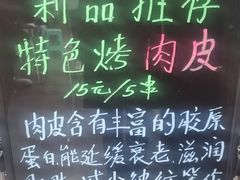 利品推存
特色烤肉皮
15元/5串
肉皮含有丰富的胶原
蛋白,能延缓衰老,滋润
减少皱纹等